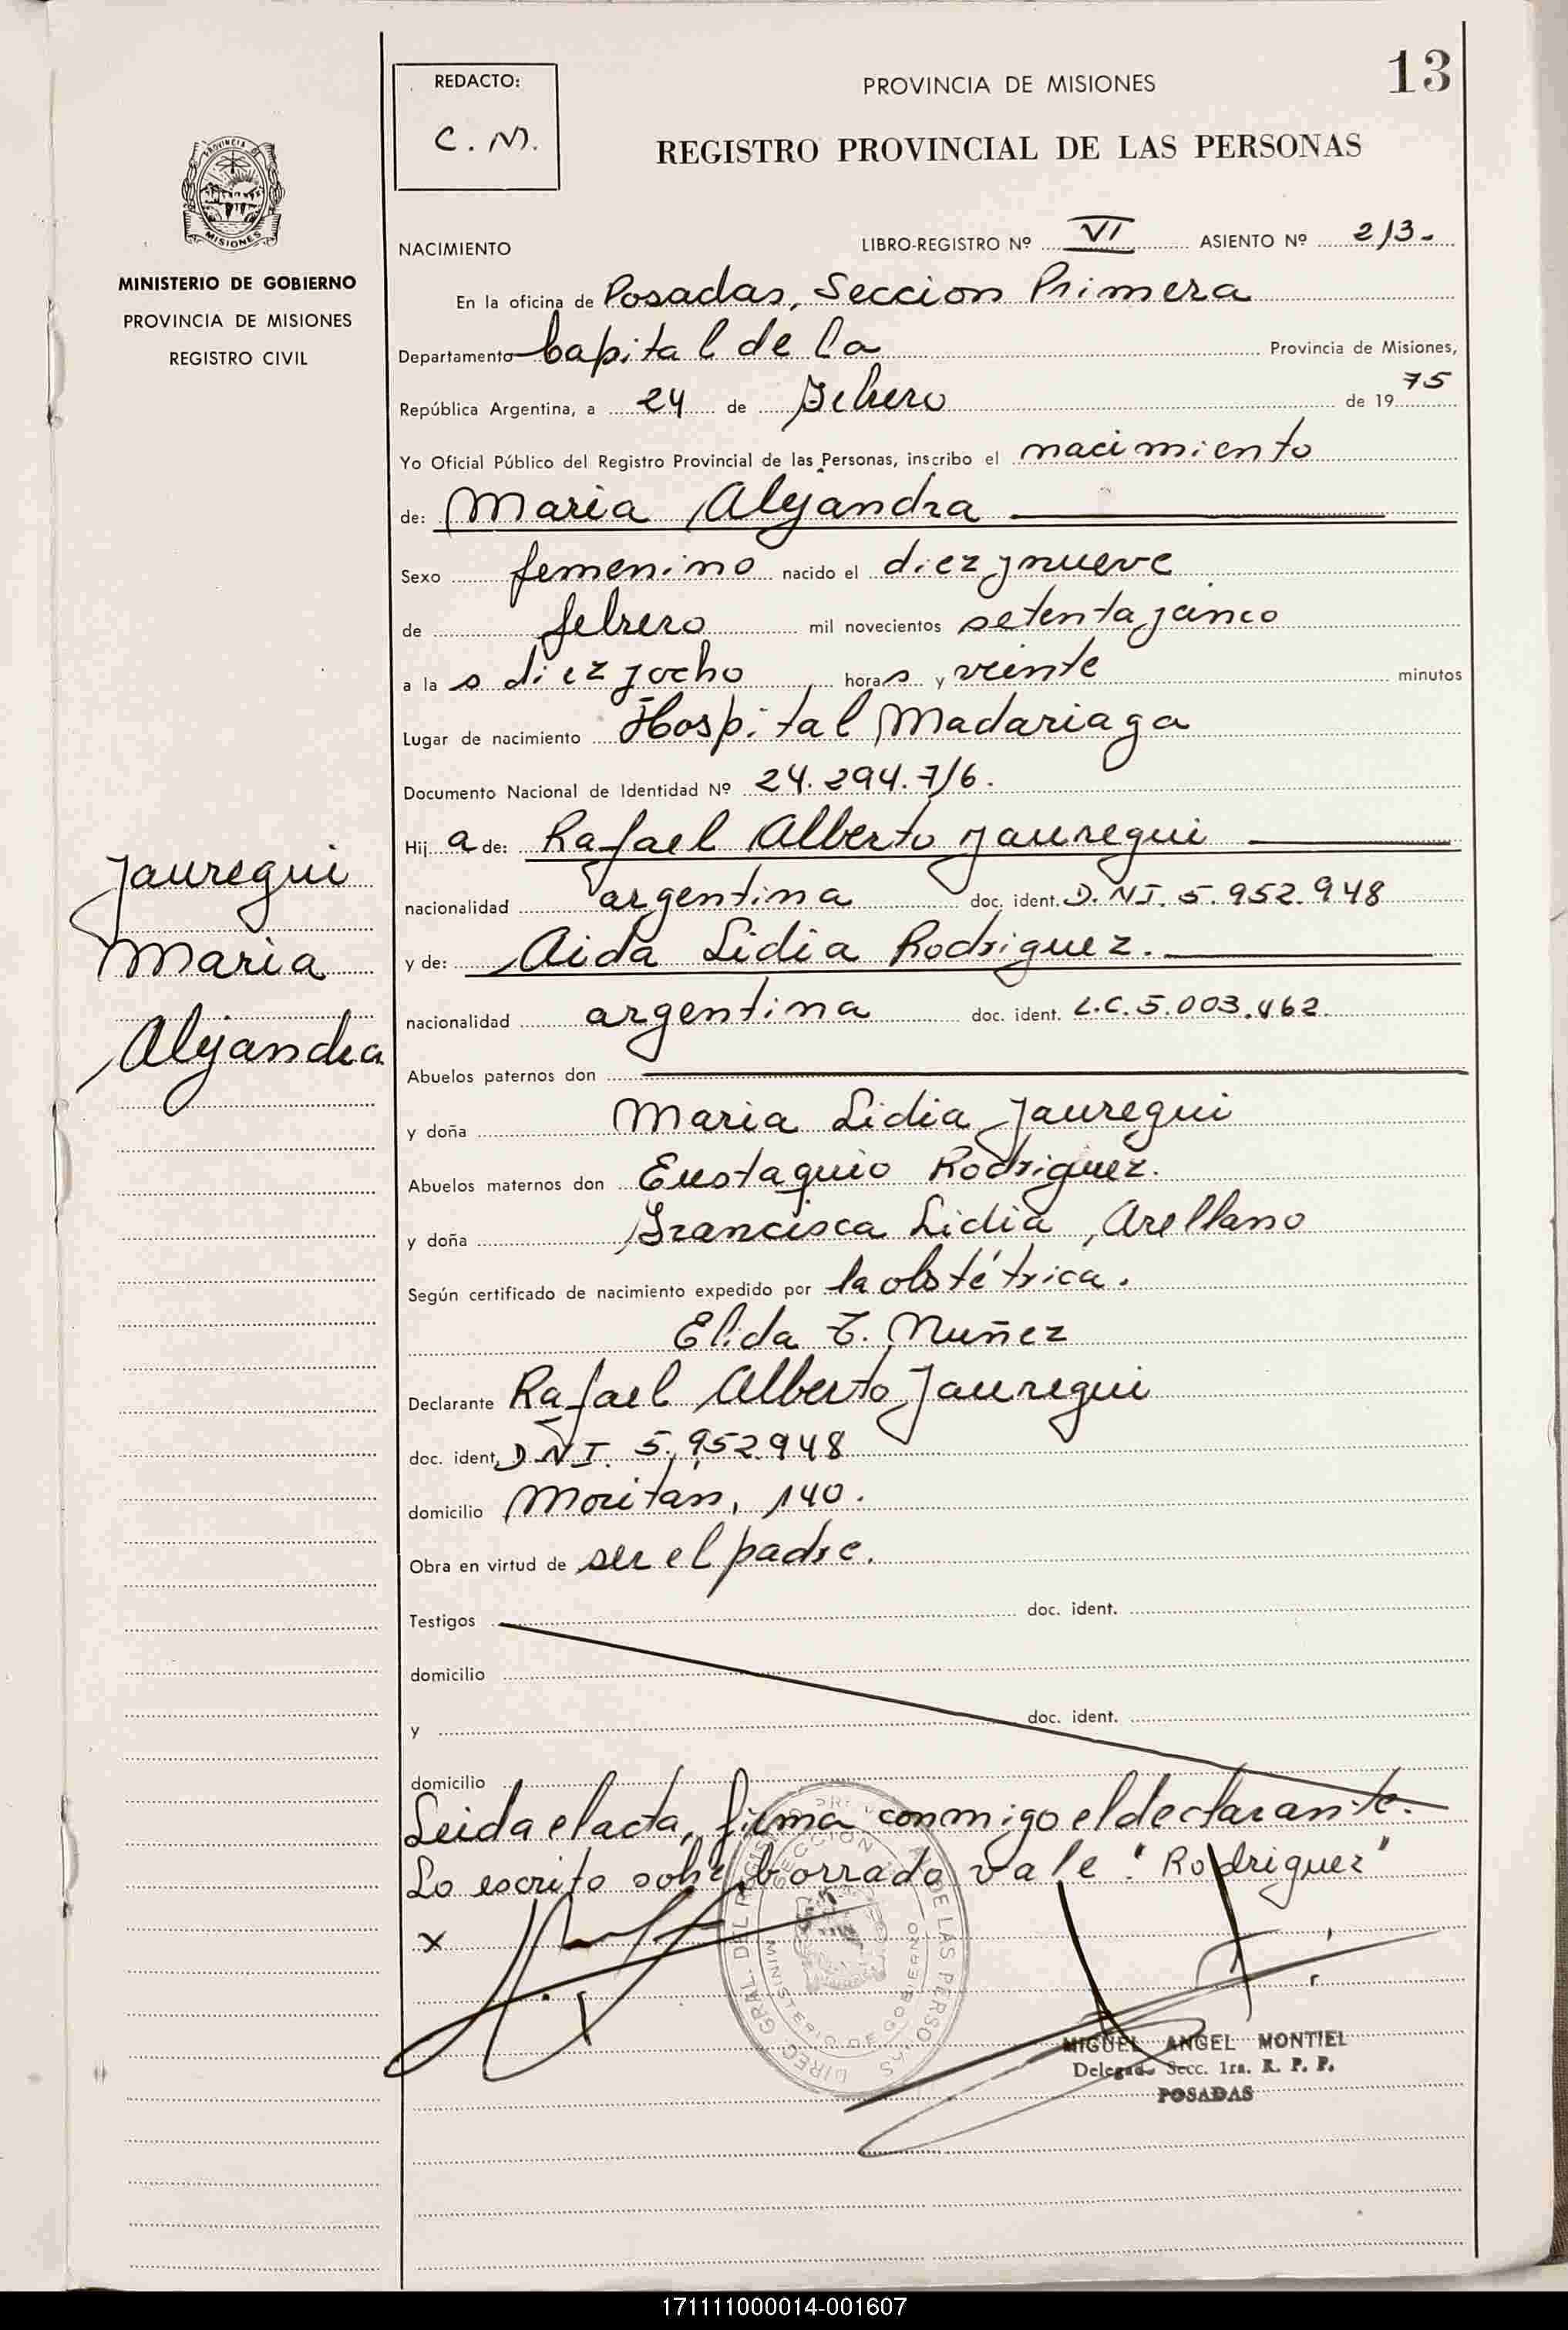 13
REDACTO:
C. N.
PROVINCIA DE MISIONES
REGISTRO PROVINCIAL DE LAS PERSONAS
PROVINCIA DE
MISIONES
MINISTERIO DE GOBIERNO
PROVINCIA DE MISIONES
REGISTRO CIVIL
Jauregui
Maria
Alejandra
NACIMIENTO LIBRO-REGISTRO Nº VI ASIENTO Nº 213.
En la oficina de Posadas, Seccion Primera
Departamento Capital de la Provincia de Misiones,
República Argentina, a 24 de Febrero de 1975
Yo Oficial Público del Registro Provincial de las Personas, inscribo el nacimiento
de: Maria Alejandra
Sexo femenino nacido el diez y nueve
de febrero mil novecientos setenta y cinco
a la s diez y ocho hora s y veinte minutos
Lugar de nacimiento Hospital Madariaga
Documento Nacional de Identidad Nº 24.294.716.
Hij a de: Rafael Alberto Jauregui
nacionalidad argentina doc. ident. D.N.I. 5.952.948
y de: Aida Lidia Rodriguez.
nacionalidad argentina doc. ident. L.C. 5.003.462.
Abuelos paternos don
y doña Maria Lidia Jauregui
Abuelos maternos don Eustaquio Rodriguez.
y doña Francisca Lidia Arellano
Según certificado de nacimiento expedido por la obstétrica.
Elida T. Nuñez
Declarante Rafael Alberto Jauregui
doc. ident. D.N.I. 5.952.948
domicilio Moritan, 140.
Obra en virtud de ser el padre.
Testigos doc. ident.
domicilio
y doc. ident.
domicilio
Leida el acta, firma conmigo el declarante.
Lo escrito sobre borrado vale "Rodriguez"
x
DIREC. GRAL. DEL DE LAS PERSONAS
SECCION
MINISTERIO DE GOBIERNO
MIGUEL ANGEL MONTIEL
Delegado Secc. 1ra. R. P. P.
POSADAS
171111000014-001607